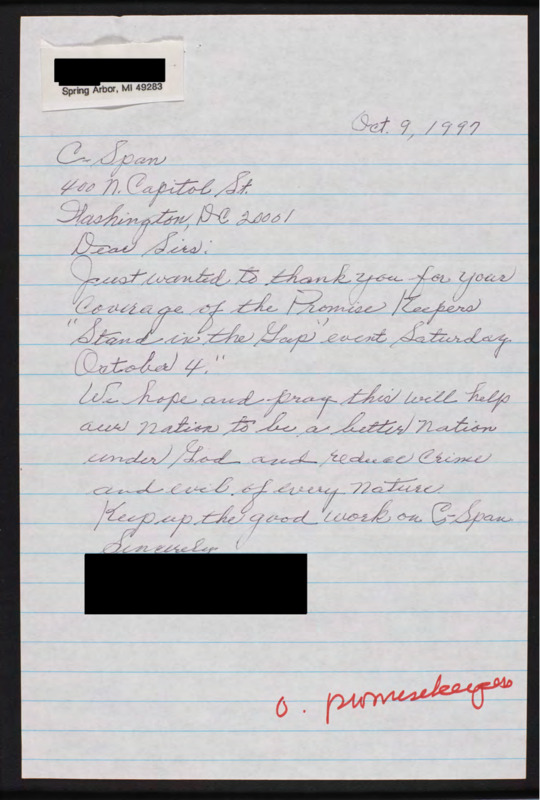 Spring Arbor, MI 49283
Oct. 9, 1997
C-Span
400 N. Capitol St.
Washington, DC 20001
Dear Sirs:
Just wanted to thank you for your
coverage of the Promise Keepers
"Stand in the Gap" event Saturday
October 4."
We hope and pray this will help
our nation to be a better nation
under God and reduce crime
and evil of every nature
Keep up the good work on C-Span
Sincerely
O. promisekeepers